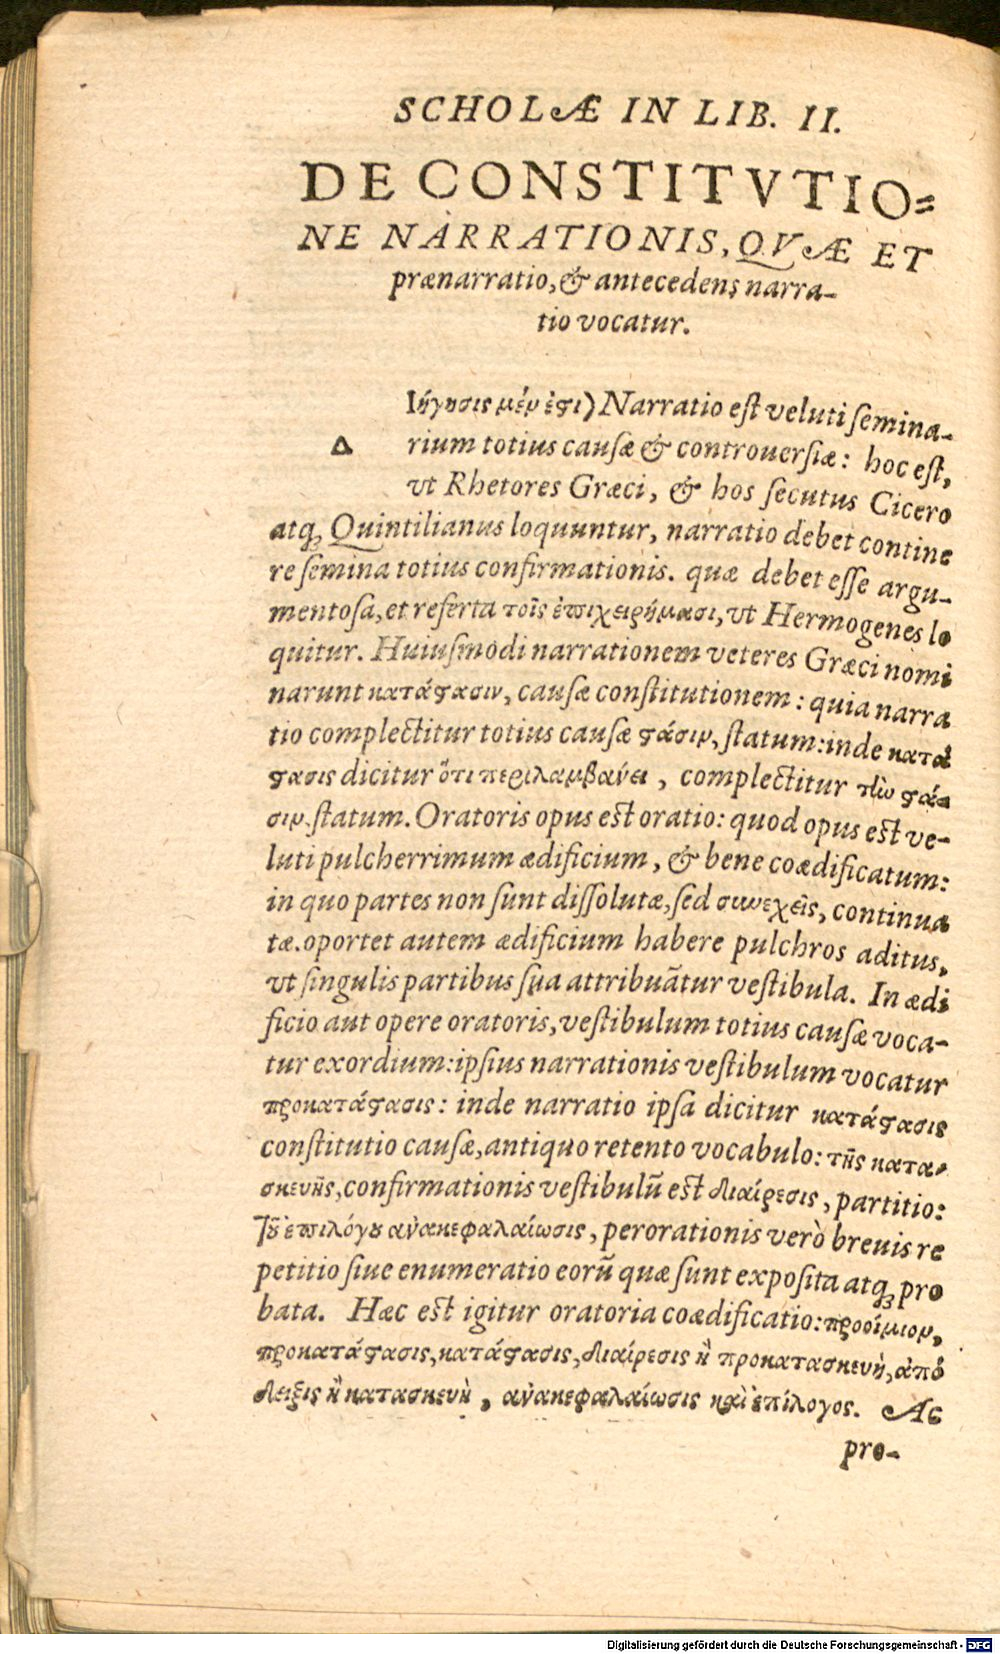 SCHOLÆ IN LIB. II.
DE CONSTITVTIO=
NE NARRATIONIS, QVÆ ET
prænarratio, & antecedens narra-
tio vocatur.
Δ Ιήγησις μέν ἐστι) Narratio est veluti semina-
rium totius causæ & controuersiæ: hoc est,
vt Rhetores Græci, & hos secutus Cicero
atq; Quintilianus loquuntur, narratio debet contine
re semina totius confirmationis. quæ debet esse argu-
mentosa, et referta τοῖς ἐπιχειρήμασι, vt Hermogenes lo
quitur. Huiusmodi narrationem veteres Græci nomi
narunt κατάστασιν, causæ constitutionem: quia narra
tio complectitur totius causæ στάσιν, statum: inde κατά
στασις dicitur ὅτι περιλαμβάνει, complectitur τὴν στά-
σιν. statum. Oratoris opus est oratio: quod opus est ve-
luti pulcherrimum ædificium, & bene coædificatum:
in quo partes non sunt dissolutæ, sed συνεχεῖς, continua
tæ. oportet autem ædificium habere pulchros aditus,
vt singulis partibus sua attribuãtur vestibula. In ædi
ficio aut opere oratoris, vestibulum totius causæ voca-
tur exordium: ipsius narrationis vestibulum vocatur
προκατάστασις: inde narratio ipsa dicitur κατάστασις
constitutio causæ, antiquo retento vocabulo: τῆς κατα-
σκευῆς, confirmationis vestibulũ est διαίρεσις, partitio:
τοῦ ἐπιλόγου ἀνακεφαλαίωσις, perorationis verò breuis re
petitio siue enumeratio eorũ quæ sunt exposita atq; pro
bata. Hæc est igitur oratoria coædificatio: προοίμιον,
προκατάστασις, κατάστασις, διαίρεσις ἢ προκατασκευὴ, ἀπό
δειξις ἢ κατασκευὴ, ἀνακεφαλαίωσις καὶ ἐπίλογος. Ac
pro-
Digitalisierung gefördert durch die Deutsche Forschungsgemeinschaft - DFG